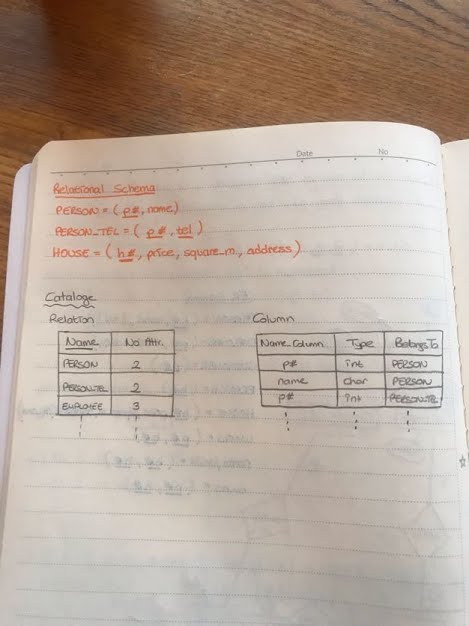 Date No
Relational Schema
PERSON = ( p#, name)
PERSON_TEL = ( p#, tel )
HOUSE = ( h#, price, square_m, address)
Cataloge
Relation
Name No Attr.
PERSON 2
PERSON_TEL 2
EMPLOYEE 3
Column
Name_Column Type BelongsTo
p# int PERSON
name char PERSON
p# int PERSON_TEL